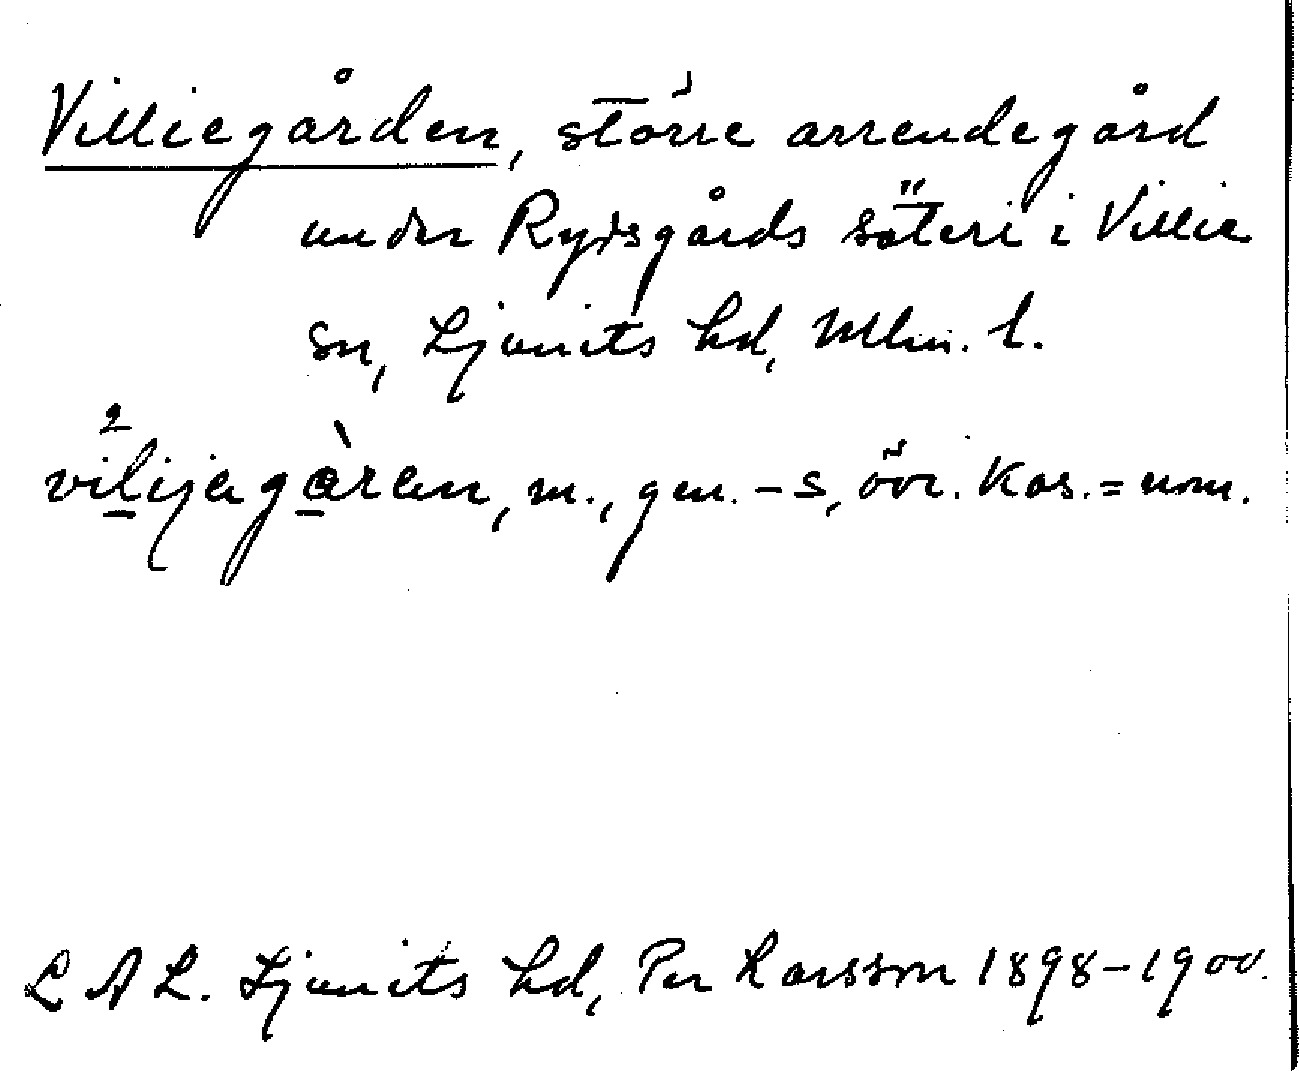 Villiegården, större arrendegård
under Rydsgårds säteri i Villie
sn, Ljunits hd, Mlm. l.
vilijagàren, m., gen. -s, övr. Kas. = nom.
L A L. Ljunits hd, Per Larsson 1898-1900.